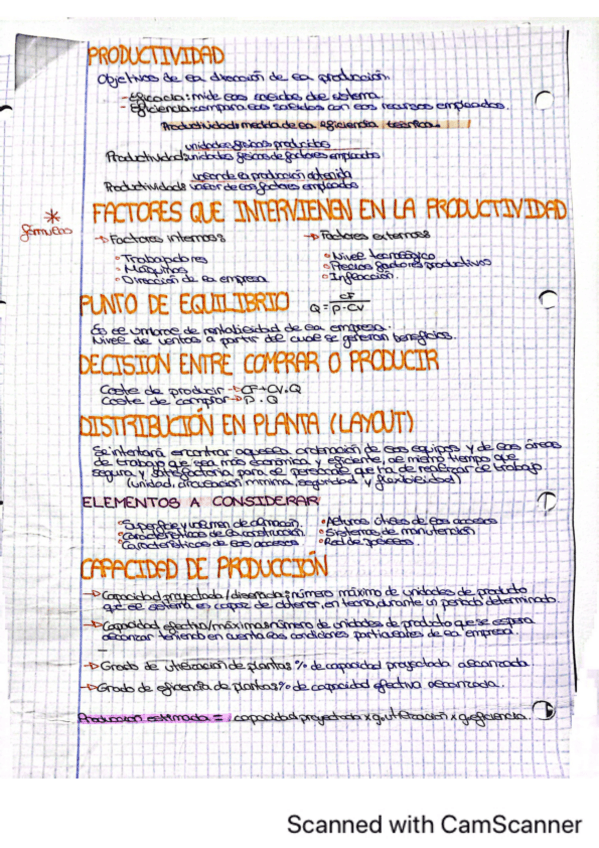 PRODUCTIVIDAD
Objetivos de la dirección de la producción:
-Eficacia: mide las salidas del sistema.
-Eficiencia: compara las salidas con los recursos empleados.
Productividad: medida de la eficiencia técnica.
unidades físicas producidas
Productividad: unidades físicas de factores empleados
valor de la producción obtenida
Productividad: valor de los factores empleados
* fórmulas
FACTORES QUE INTERVIENEN EN LA PRODUCTIVIDAD
→ Factores internos: → Factores externos:
• Trabajadores • Nivel tecnológico
• Máquinas • Precios factores productivos
• Dirección de la empresa • Inflación.
PUNTO DE EQUILIBRIO Q = CF / P - CV
Es el umbral de rentabilidad de la empresa.
Nivel de ventas a partir del cual se generan beneficios.
DECISION ENTRE COMPRAR O PRODUCIR
Coste de producir → CF + CV . Q
Coste de comprar → P . Q
DISTRIBUCIÓN EN PLANTA (LAYOUT)
Se intentará encontrar aquella ordenación de los equipos y de las áreas
de trabajo que sea más económica y eficiente, al mismo tiempo que
segura y satisfactoria para el personal que ha de realizar el trabajo.
(unidad, circulación mínima, seguridad y flexibilidad)
ELEMENTOS A CONSIDERAR
• Superficie y volumen de • Alturas útiles de los accesos
• Características de la construcción • Sistemas de manutención
• Características de los accesos • Red de
CAPACIDAD DE PRODUCCIÓN
→ Capacidad proyectada / diseñada: número máximo de unidades de producto
que el sistema es capaz de obtener, en teoría, durante un periodo determinado.
→ Capacidad efectiva/máxima: número de unidades de producto que se espera
alcanzar teniendo en cuenta las condiciones particulares de la empresa.
→ Grado de utilización de planta: % de capacidad proyectada alcanzada
→ Grado de eficiencia de planta: % de capacidad efectiva alcanzada.
Producción estimada = capacidad proyectada x g. utilización x g. eficiencia.
Scanned with CamScanner